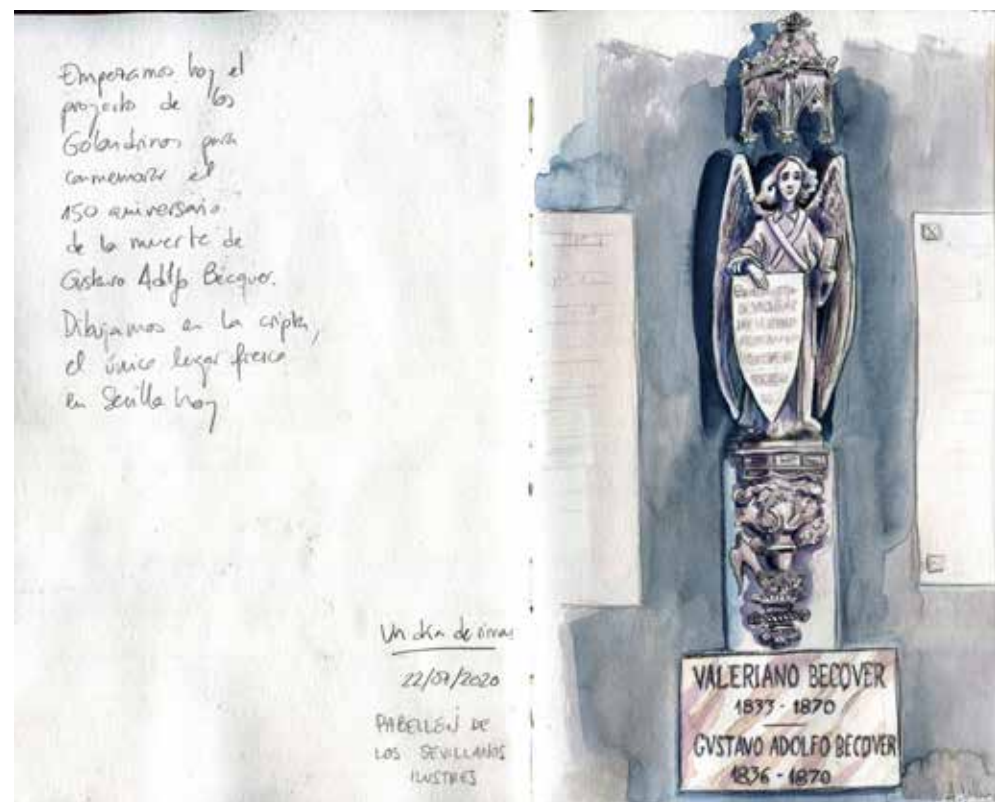 Empezamos hoy el
proyecto de las
Golondrinas para
conmemorar el
150 aniversario
de la muerte de
Gustavo Adolfo Bécquer.
Dibujamos en la cripta,
el único lugar fresco
en Sevilla hoy
Un día de rimas
22/07/2020
PABELLÓN DE
LOS SEVILLANOS
ILUSTRES
VALERIANO BECQVER
1833 - 1870
GVSTAVO ADOLFO BECQVER
1836 - 1870